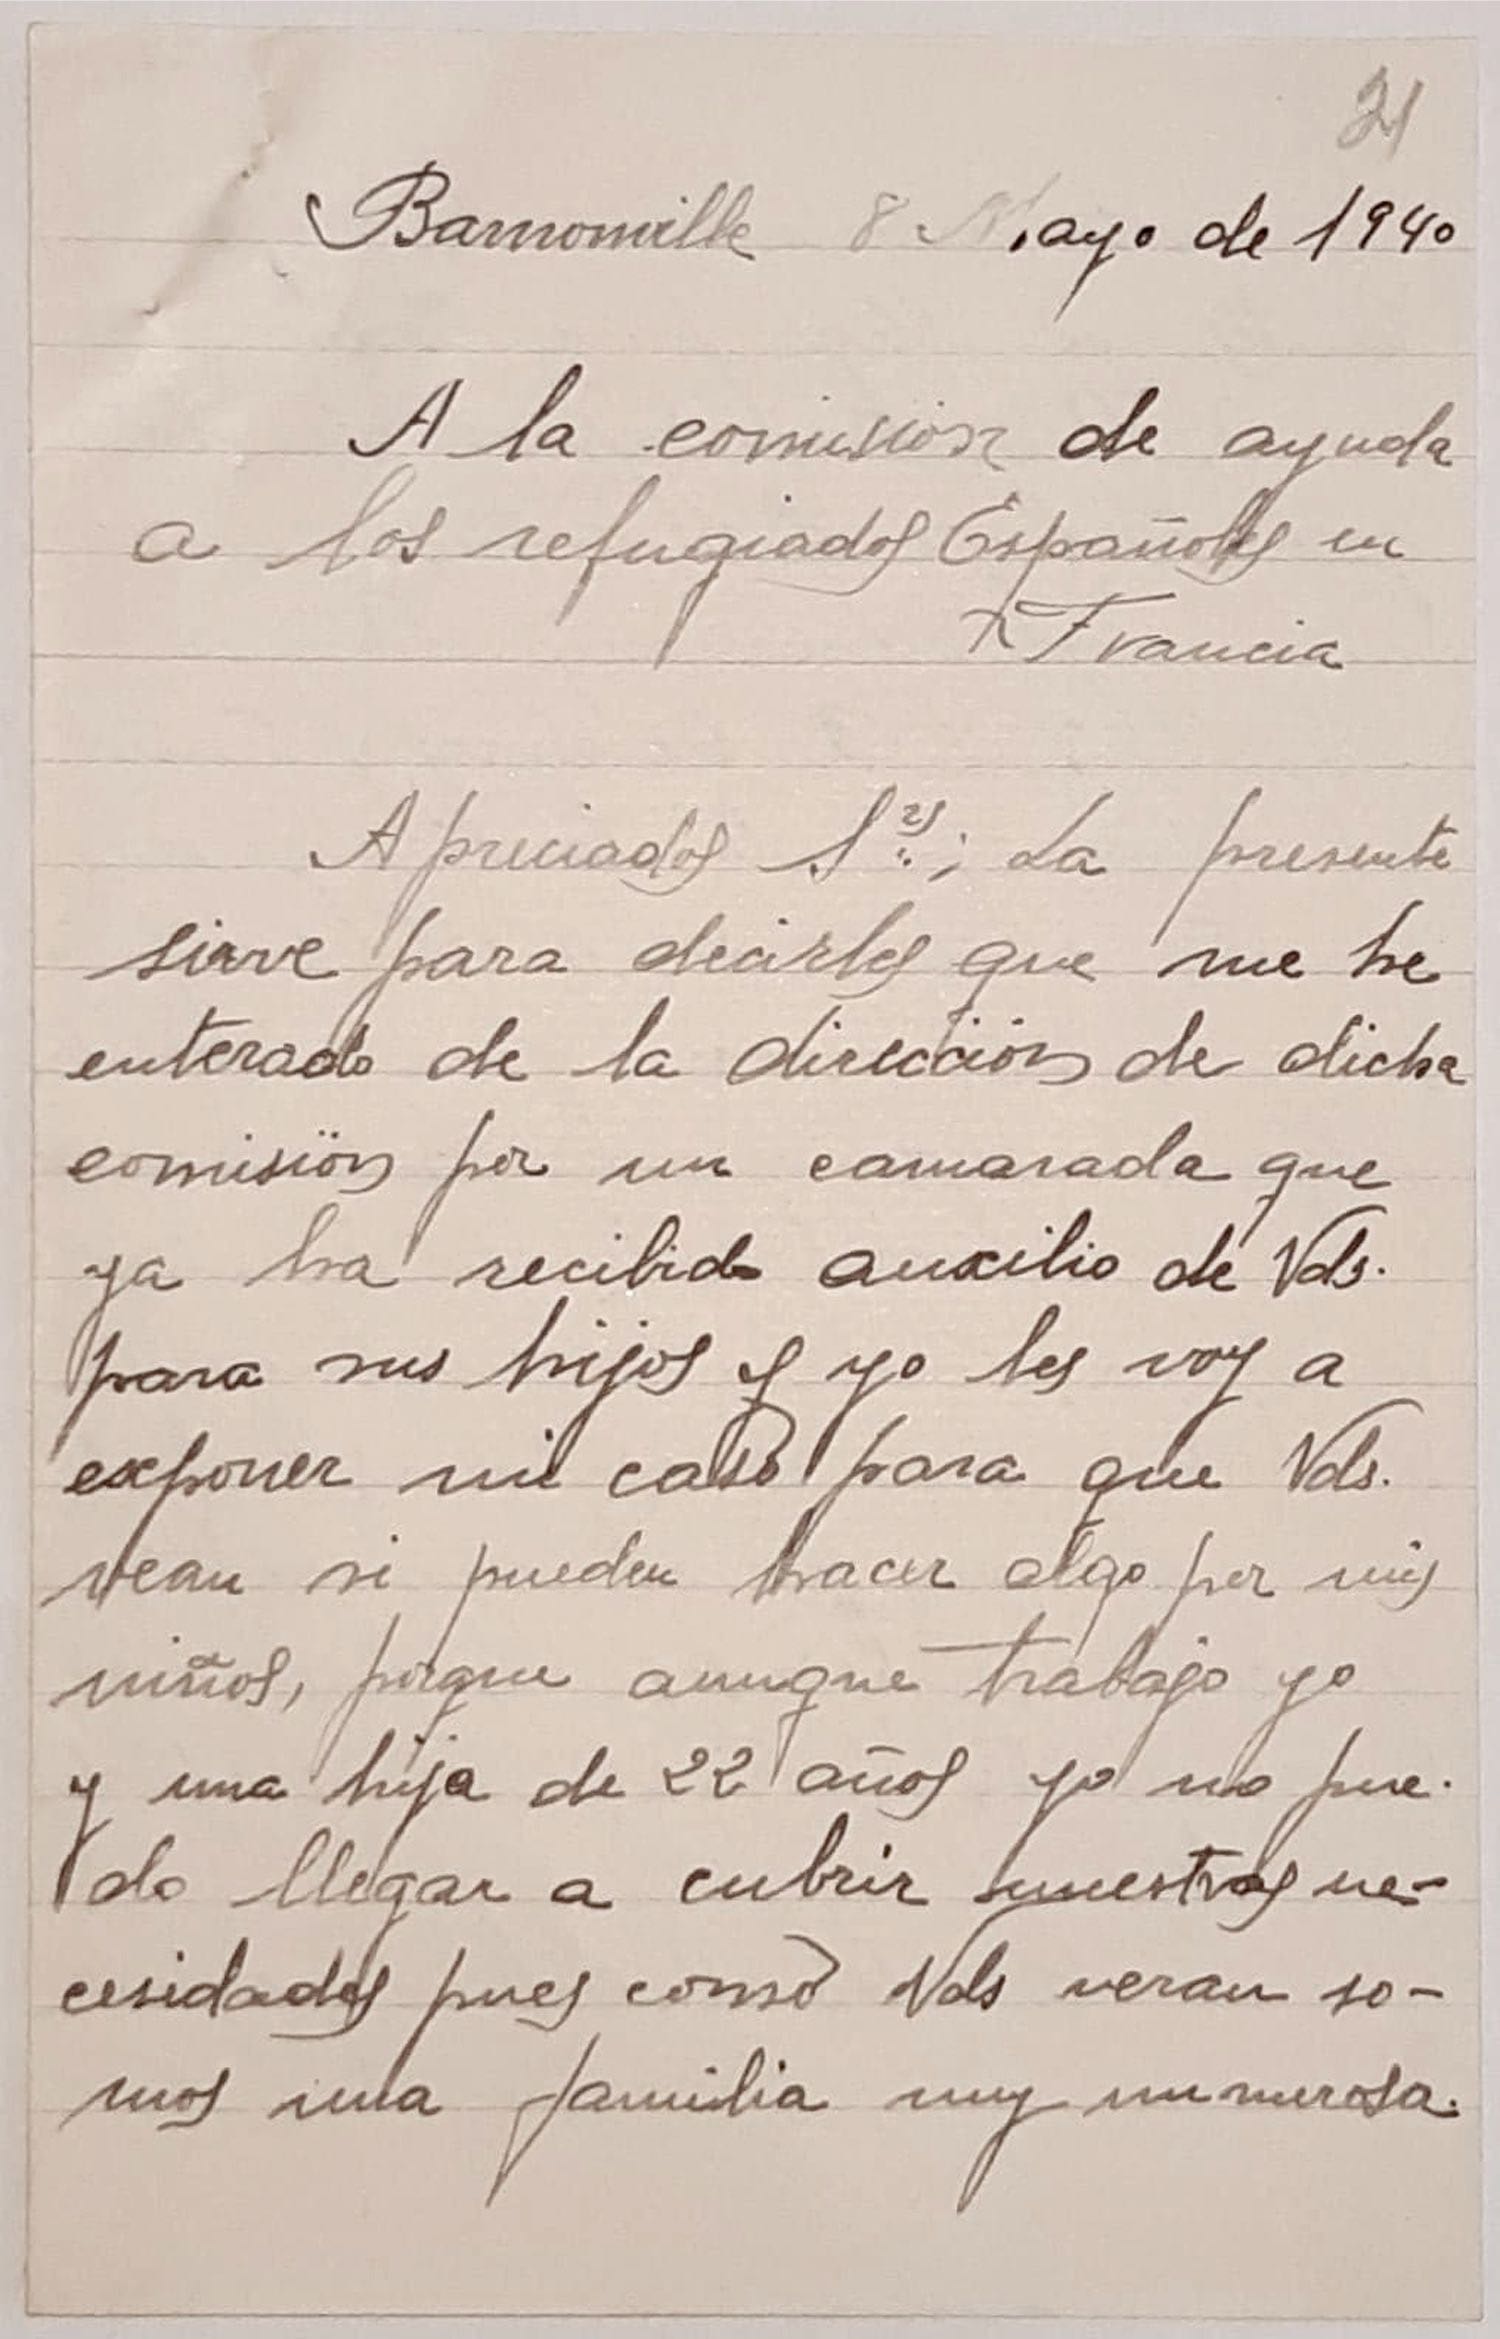 21
Barnonville 8 Mayo de 1940
A la comision de ayuda
a los refugiados Españoles en
Francia
Apreciados Srs; La presente
sirve para decirles que me he
enterado de la dirección de dicha
comisiön por un camarada que
ya ha recibido auxilio de Vds.
para sus hijos y yo les voy a
exponer mi caso para que Vds.
vean si pueden hacer algo por mis
niños, porque aunque trabajo yo
y una hija de 22 años yo no pue-
do llegar a cubrir nuestras ne-
cesidades pues como Vds veran so-
mos una familia muy numerosa.